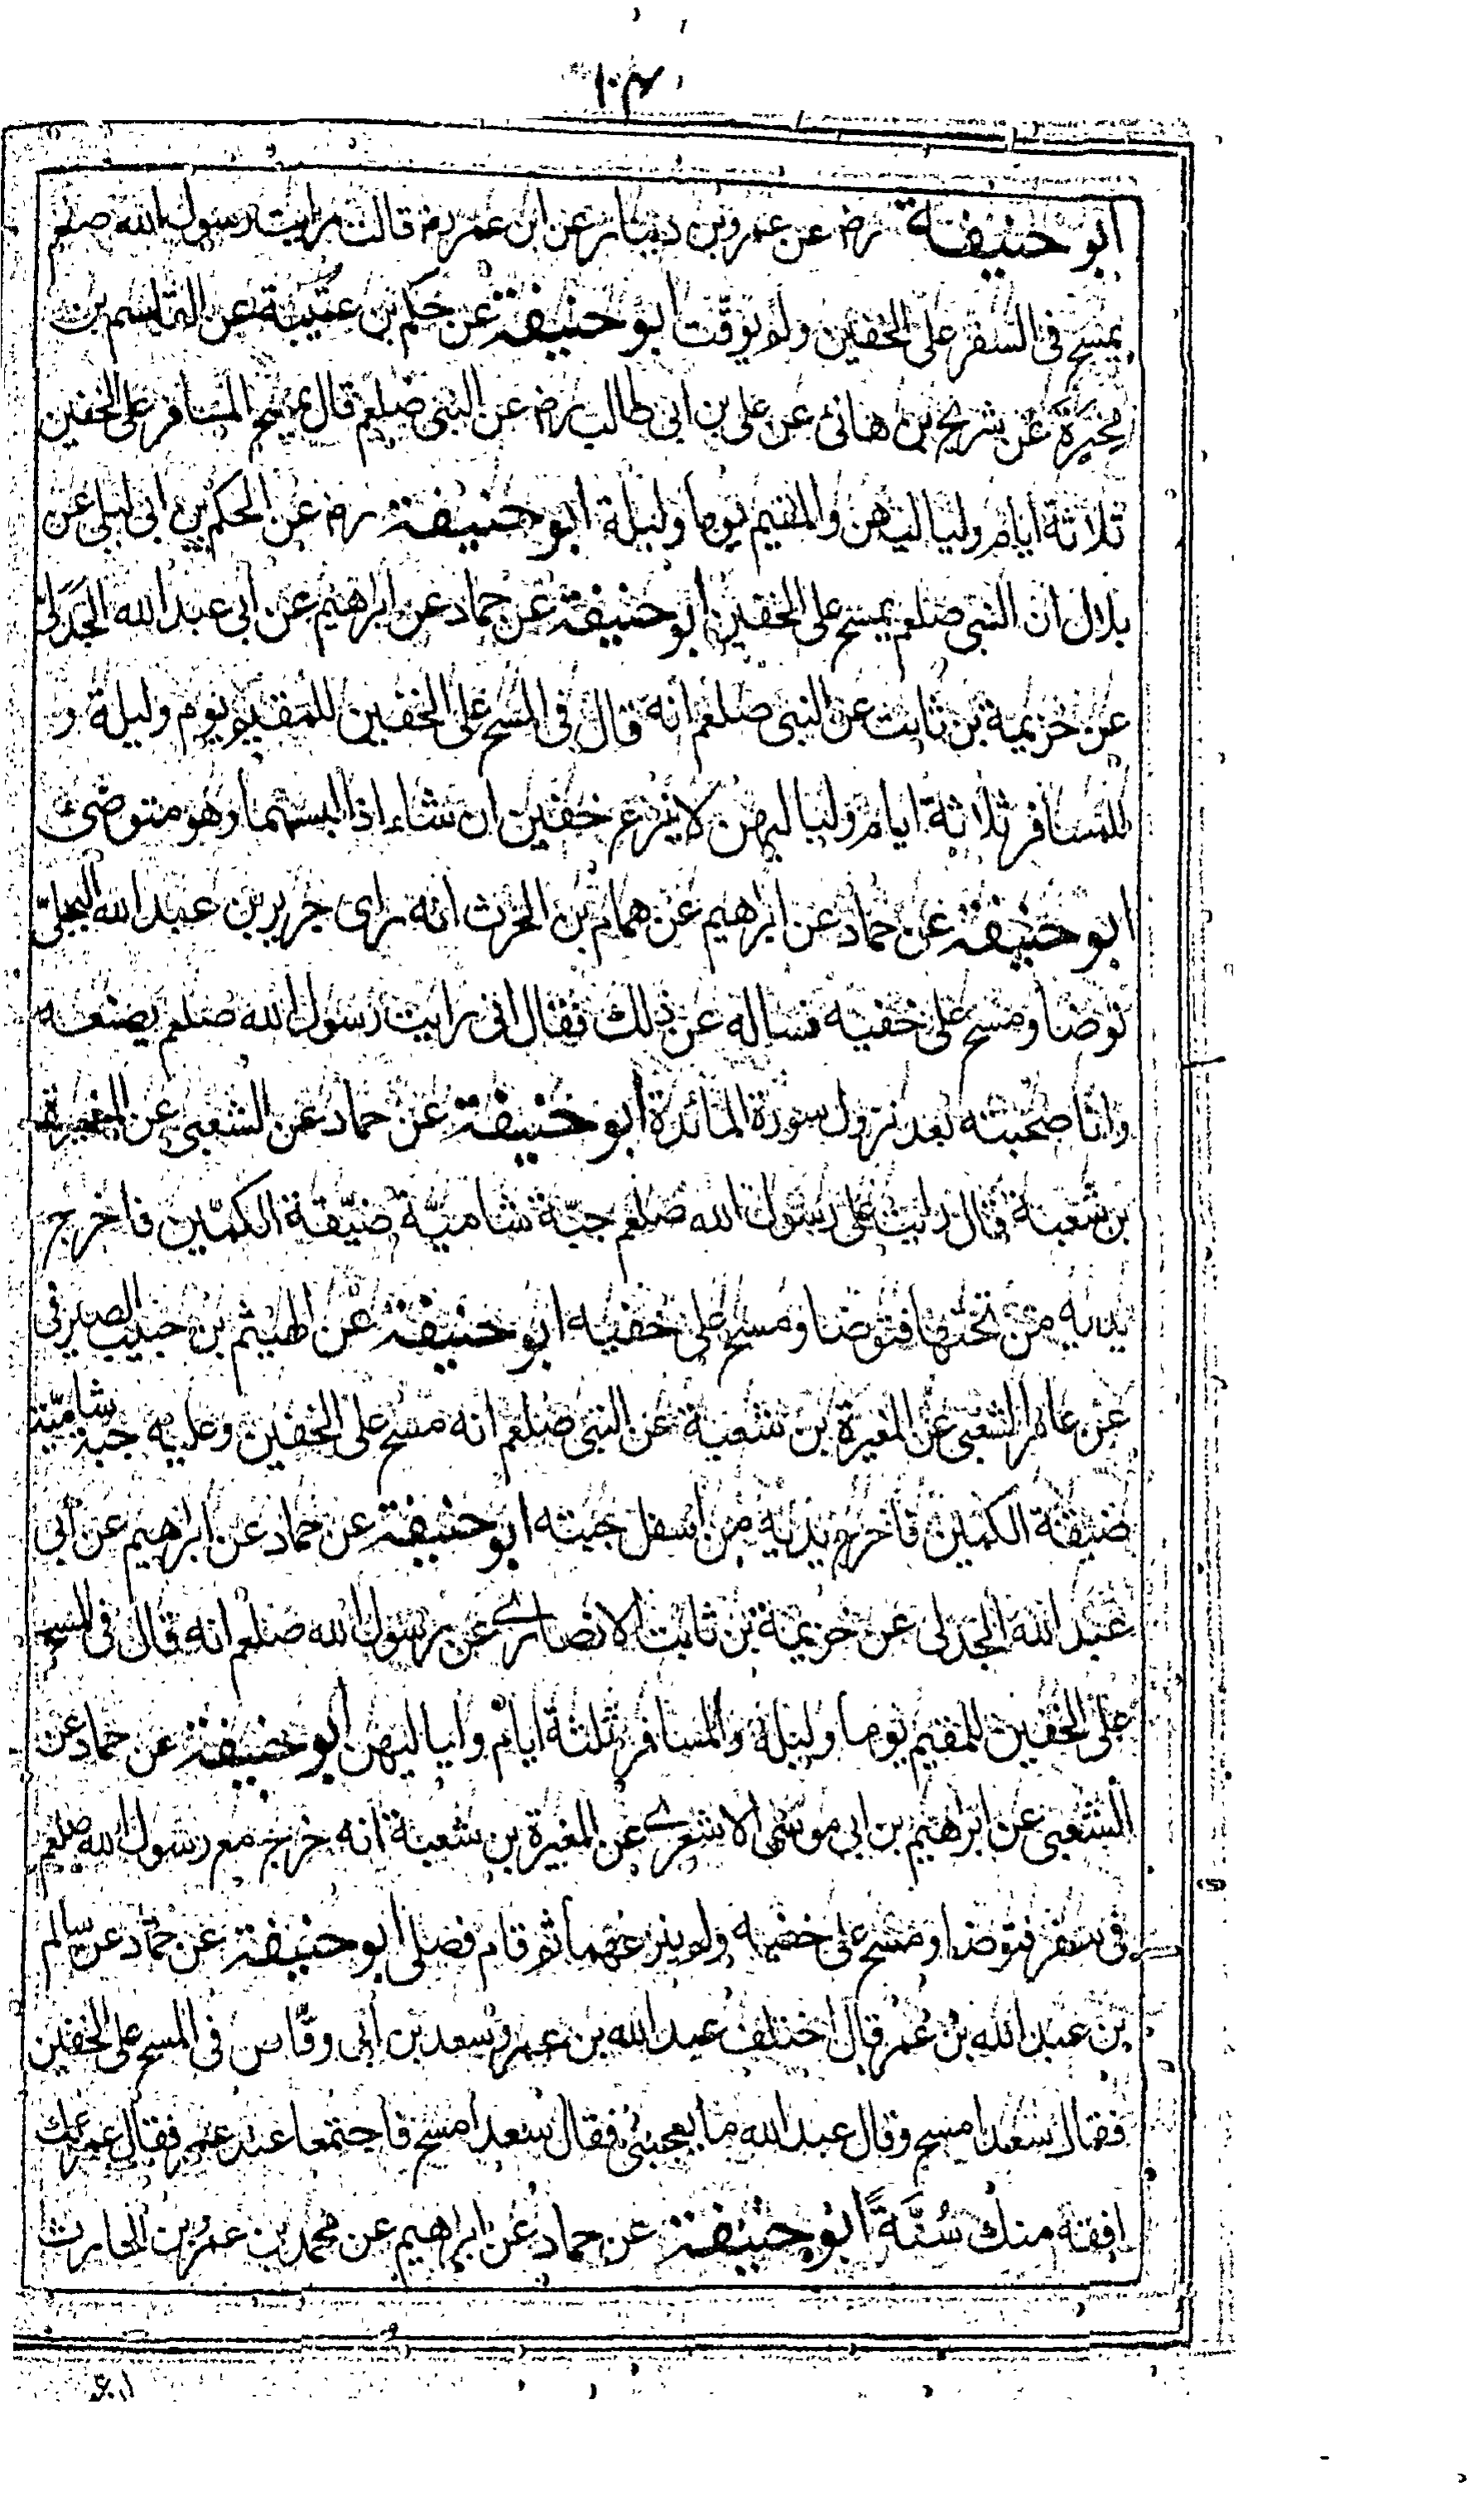 ١٠٣
ابو حنيفة رضـ عن عمرو بن دينار عن ابن عمر رضـ قال رايت رسول الله صلعم
يمسح فى السفر على الخفين ولم يوقت ابو حنيفة عن حكم بن عتيبة عن القاسم بن
مخيرة عن شريح بن هانئ عن على بن ابى طالب رضـ عن النبى صلعم قال يمسح المسافر على الخفين
ثلاثة ايام ولياليهن والمقيم يوما وليلة ابو حنيفة رضـ عن الحكم بن ابى ليلى عن
بلال ان النبى صلعم يمسح على الخفين ابو حنيفة عن حماد عن ابرهيم عن ابى عبد الله الجدلى
عن خزيمة بن ثابت عن النبى صلعم انه قال فى المسح على الخفين للمقيم يوم وليلة و
للمسافر ثلاثة ايام ولياليهن لا ينزع خفين ان شاء اذا لبسهما وهو متوضئ
ابو حنيفة عن حماد عن ابرهيم عن همام بن الحرث انه راى جرير بن عبد الله البجلىّ
توضا ومسح على خفيه فساله عن ذلك فقال انى رايت رسول الله صلعم يصنعه
وانا صحبته بعد نزول سورة المائدة ابو حنيفة عن حماد عن الشعبى عن المغيرة
بن شعبة قال رايت على رسول الله صلعم جبّة شاميّة ضيّقة الكمّين فاخرج
يديه من تحتها فتوضا ومسح على خفيه ابو حنيفة عن الهيثم بن حبيب الصيرفى
عن عامر الشعبى عن المغيرة بن شعبة عن النبى صلعم انه مسح على الخفين وعليه جبة شاميّة
ضيقة الكمين فاخرج يديه من اسفل جبته ابو حنيفة عن حماد عن ابرهيم عن ابى
عبد الله الجدلى عن خزيمة بن ثابت الانصارى عن رسول الله صلعم انه قال فى المسح
على الخفين للمقيم يوما وليلة والمسافر ثلثة ايام ولياليهن ابو حنيفة عن حماد عن
الشعبى عن ابرهيم بن ابى موسى الاشعرى عن المغيرة بن شعبة انه خرج مع رسول الله صلعم
فى سفر فتوضا ومسح على خفيه ولم ينزعهما ثم قام فصلى ابو حنيفة عن حماد عن سالم
بن عبد الله بن عمر قال اختلف عبد الله بن عمر وسعد بن ابى وقاص فى المسح على الخفين
فقال سعد امسح وقال عبد الله ما يعجبنى فقال سعد امسح فاجتمعا عند عمر فقال عمر عمك
افقه منك سُنّةً ابو حنيفة عن حماد عن ابرهيم عن محمد بن عمر بن الحارث